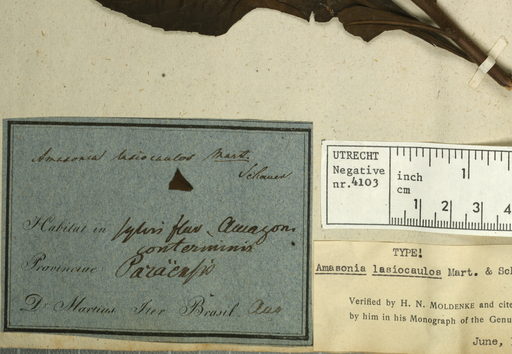 Amasonia lasiocaulos Mart.
Schauer
Habitat in sylvis fluv. Amazon.
conterminis
Provinciae Paraënsis
Dr. Martius Iter Brasil.
UTRECHT
Negative
nr. 4103
inch
cm
1
1 2 3 4
TYPE!
Amasonia lasiocaulos Mart. & Sch
Verified by H. N. MOLDENKE and cite
by him in his Monograph of the Genu
June, 1